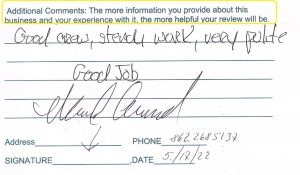 Additional Comments: The more information you provide about this
business and your experience with it, the more helpful your review will be.
Good crew, steady work, very polite
Good Job
Address
PHONE 8622685137
SIGNATURE
,DATE 5/18/22